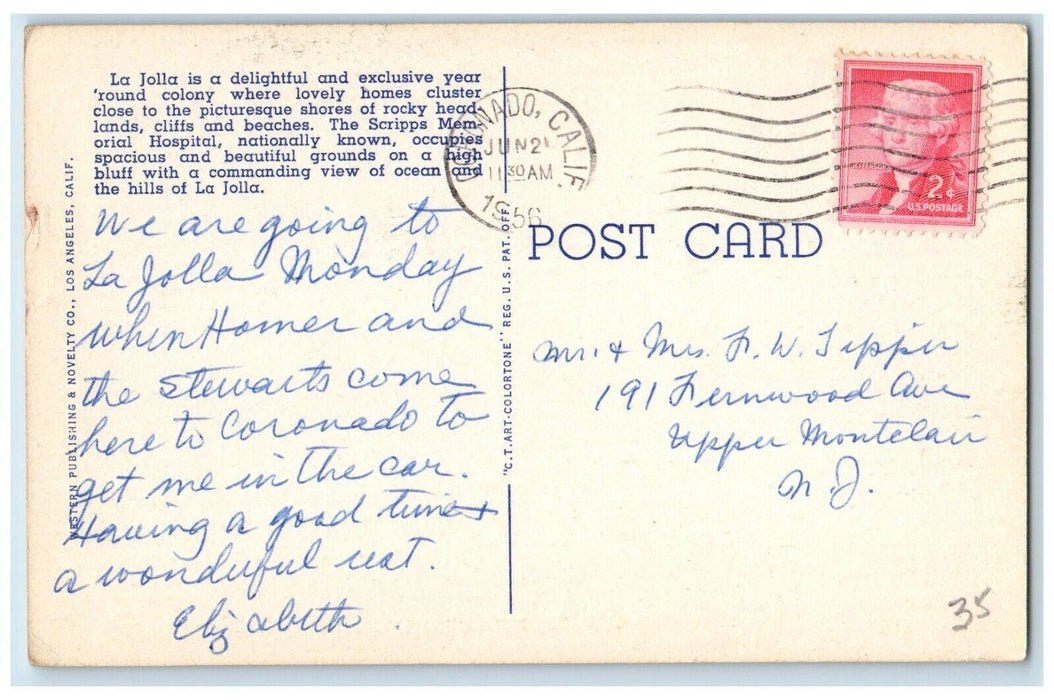 La Jolla is a delightful and exclusive year
'round colony where lovely homes cluster
close to the picturesque shores of rocky head-
lands, cliffs and beaches. The Scripps Mem-
orial Hospital, nationally known, occupies
spacious and beautiful grounds on a high
bluff with a commanding view of ocean and
the hills of La Jolla.
We are going to
La Jolla Monday
when Homer and
the Stewarts come
here to Coronado to
get me in the car.
Having a good time +
a wonderful rest.
Elizabeth.
WESTERN PUBLISHING & NOVELTY CO., LOS ANGELES, CALIF.
"C.T. ART-COLORTONE" REG. U.S. PAT. OFF.
CORONADO, CALIF.
JUN 2
11 30 AM
1956
2¢
U.S. POSTAGE
POST CARD
Mr. & Mrs. F. W. Tippir
191 Fernwood Ave
Upper Montclair
N J.
35